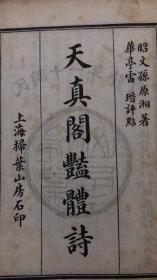 昭文孫原湘著
華亭雷瑨評點
天真閣豔體詩
上海掃葉山房石印